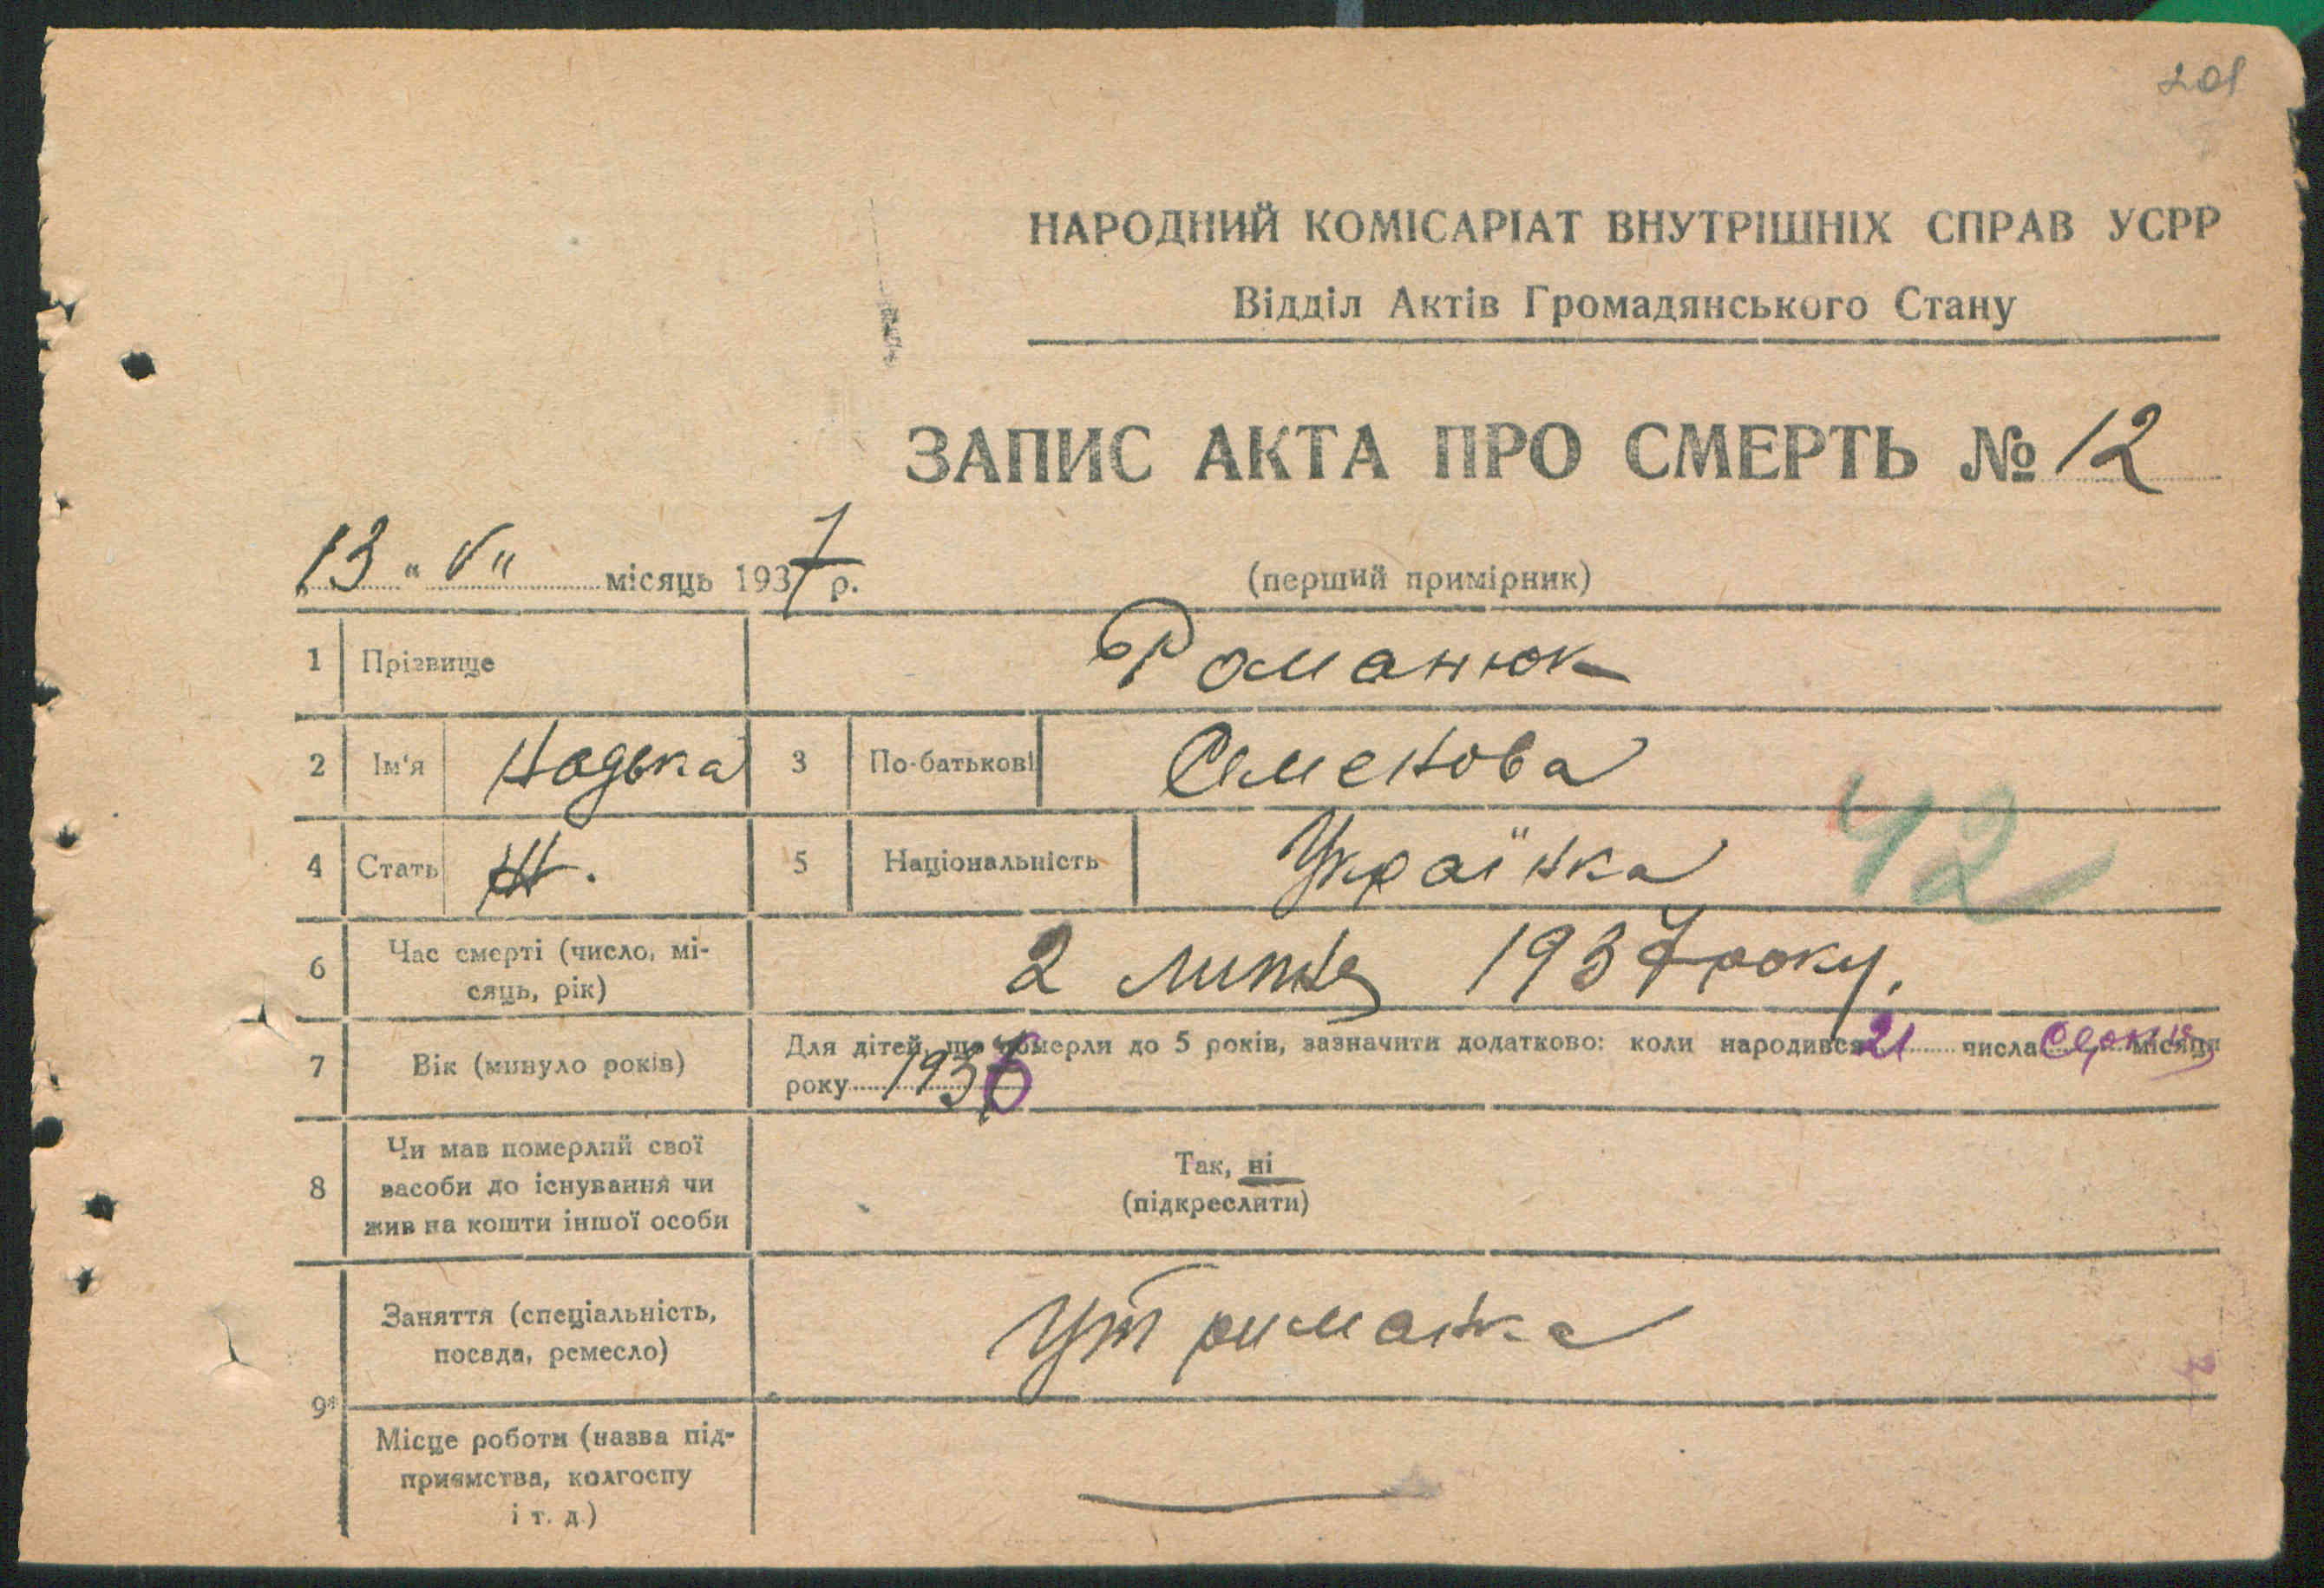 201
НАРОДНИЙ КОМІСАРІАТ ВНУТРІШНІХ СПРАВ УСРР
Відділ Актів Громадянського Стану
ЗАПИС АКТА ПРО СМЕРТЬ № 12
„13 " VII місяць 1937 р.
(перший примірник)
1 Прізвище Романюк
2 Ім'я Надька 3 По-батькові Семенова
4 Стать Ж. 5 Національність Українка
42
6 Час смерті (число, мі-
сяць, рік) 2 липня 1937 року.
7 Вік (минуло років) Для дітей, що померли до 5 років, зазначити додатково: коли народився 21 числа серпня місяця
року 1936
8 Чи мав померлий свої
засоби до існування чи
жив на кошти іншої особи
Так, ні
(підкреслити)
9* Заняття (спеціальність,
посада, ремесло) Утриманка
Місце роботи (назва під-
приємства, колгоспу
і т. д.)